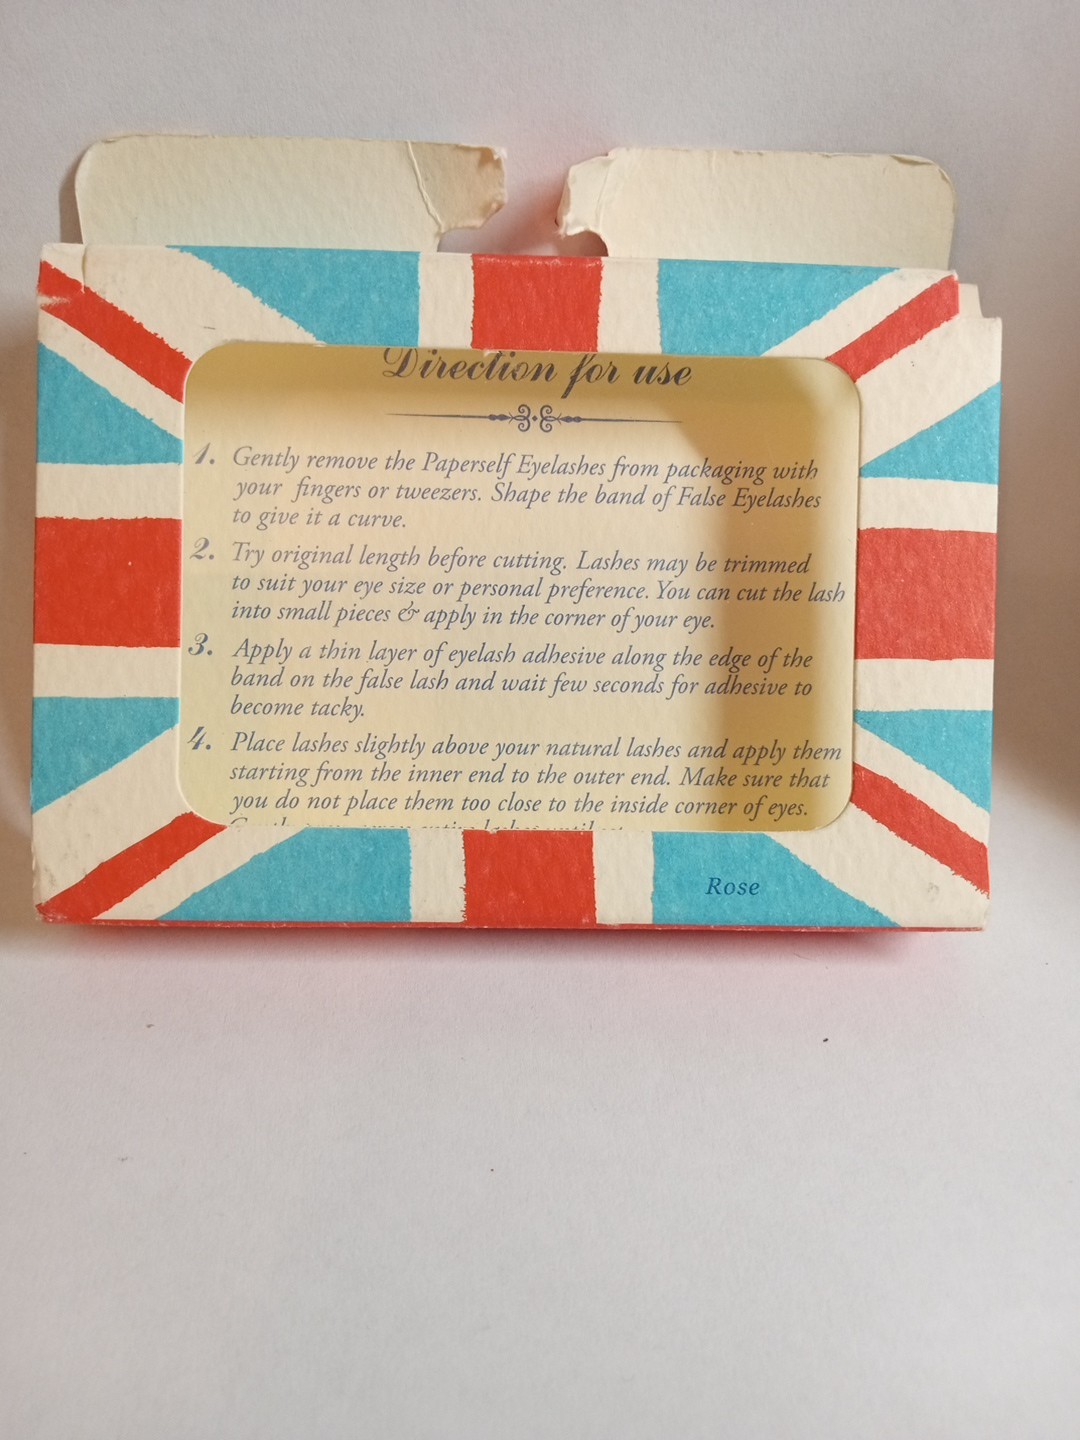 Direction for use
1. Gently remove the Paperself Eyelashes from packaging with
your fingers or tweezers. Shape the band of False Eyelashes
to give it a curve.
2. Try original length before cutting. Lashes may be trimmed
to suit your eye size or personal preference. You can cut the lash
into small pieces & apply in the corner of your eye.
3. Apply a thin layer of eyelash adhesive along the edge of the
band on the false lash and wait few seconds for adhesive to
become tacky.
4. Place lashes slightly above your natural lashes and apply them
starting from the inner end to the outer end. Make sure that
you do not place them too close to the inside corner of eyes.
Rose